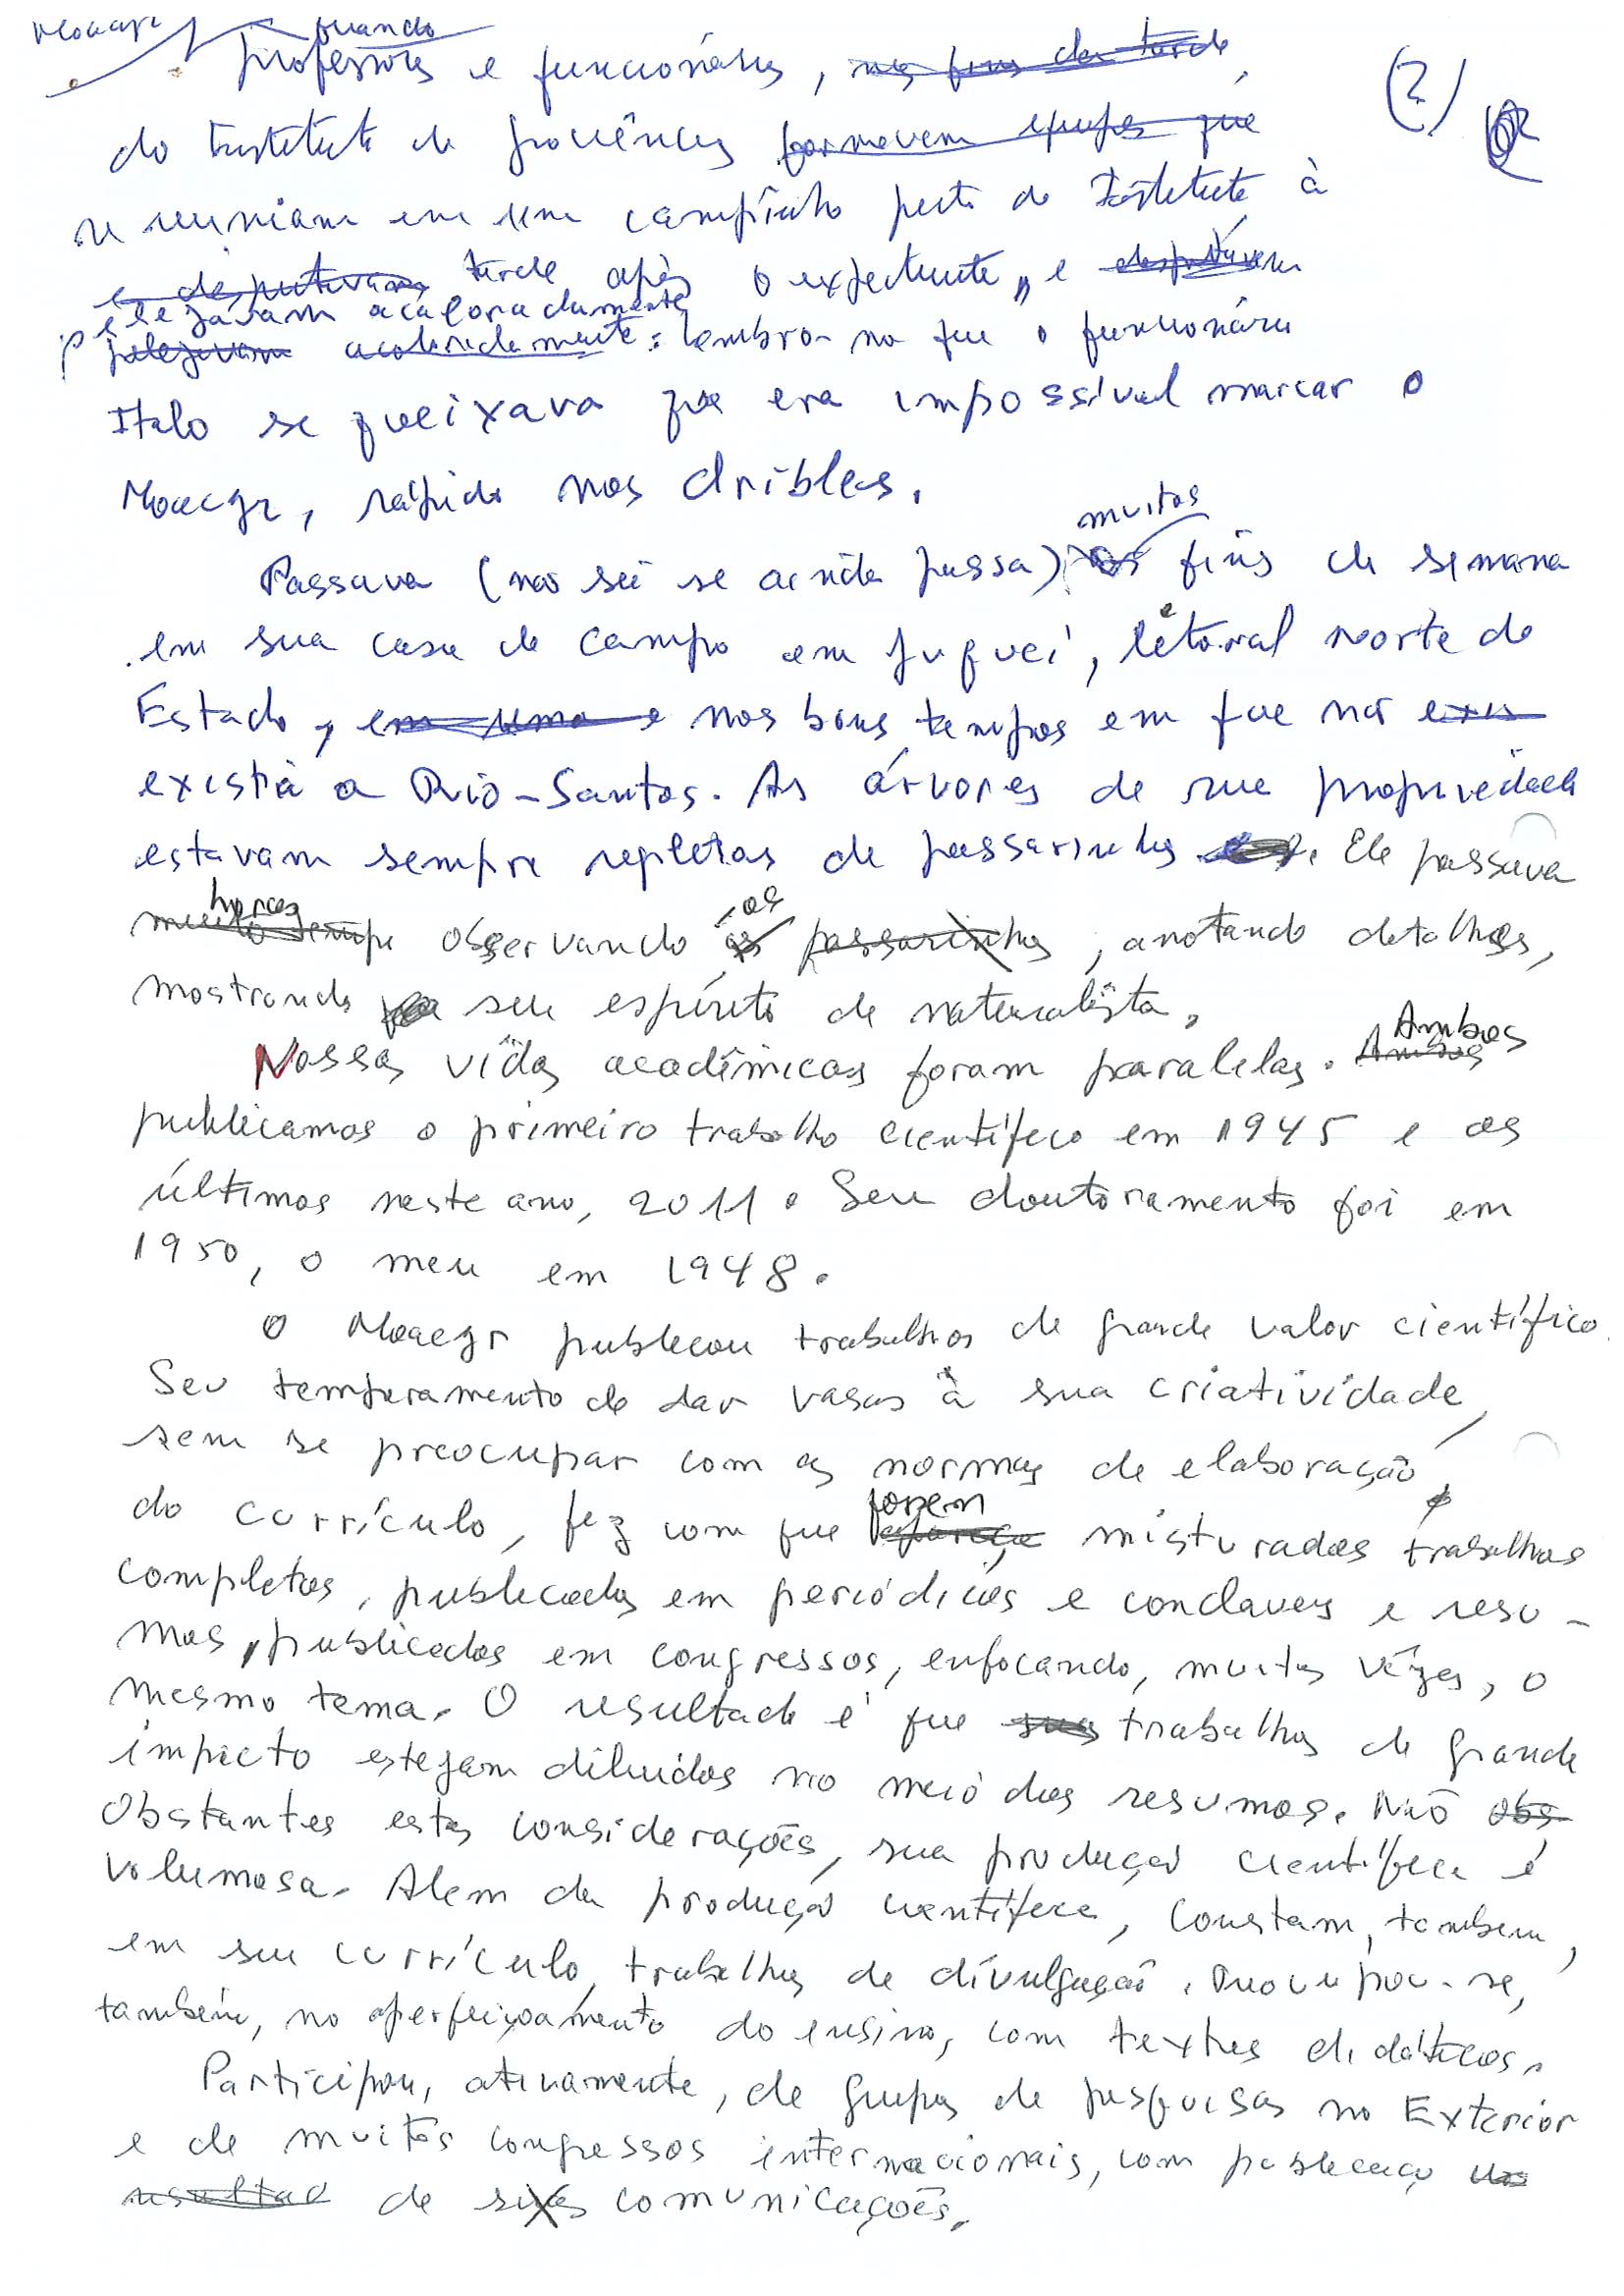 Moacyr quando
professores e funcionários, nos fins da tarde
(2)
do Instituto de Biociências formavam equipes que
se reuniam em um campinho perto do Instituto à
e disputavam tarde após o expediente, e disputavam
pelejavam acaloradamente
pelejavam acaloradamente: lembro-me que o funcionário
Italo se queixava que era impossível marcar o
Moacyr, rápido nos dribles.
muitos
Passava (não sei se ainda passa) os fins de semana
em sua casa de campo em Juquei, litoral norte do
Estado, em uma e nos bons tempos em que não exis
existia a Rio-Santos. As árvores de sua propriedade
estavam sempre repletas de passarinhos. Ele passava
horas , os
muito tempo observando os passarinhos, anotando detalhes,
mostrando seu espírito de naturalista.
Ambos
Nossas vidas acadêmicas foram paralelas. Ambos
publicamos o primeiro trabalho científico em 1945 e os
últimos neste ano, 2011. Seu doutoramento foi em
1950, o meu em 1948.
O Moacyr publicou trabalhos de grande valor científico.
Seu temperamento de dar vasas à sua criatividade,
sem se preocupar com as normas de elaboração
do currículo, fez com que fossem misturados trabalhos
completos, publicados em periódicos e conclaves e resu-
mos, publicados em congressos, enfocando, muitas vêzes, o
mesmo tema. O resultado é que seus trabalhos de grande
impacto estejam diluídos no meio dos resumos. Não obs
obstantes estas considerações, sua produção científica é
volumosa. Alem da produção científica, constam, tambem,
em seu currículo, trabalhos de divulgação. Preocupou-se,
também, no aperfeiçoamento do ensino, com textos didáticos.
Participou, ativamente, de grupos de pesquisas no Exterior
e de muitos congressos internacionais, com publicação
resultad de seus comunicações.